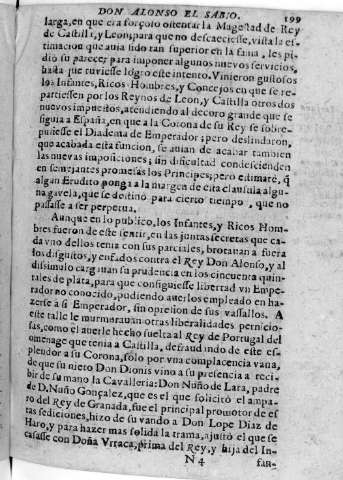 DON ALONSO EL SABIO. 199
larga, en que era forçoso ostentar la Magestad de Rey
de Castilla, y Leon, para que no descaeciesse, vista la es-
timacion que auia sido tan superior en la fama, les pi-
diò su parecer para imponer algunos nuevos servicios.
hasta que tuviesse logro este intento. Vinieron gustosos
los Infantes, Ricos-Hombres, y Concejos en que se re-
partiessen por los Reynos de Leon, y Castilla otros dos
nuevos impuestos, atendiendo al decoro grande que se
siguia a España, en que a la Corona de su Rey se sobre-
pusiesse el Diadema de Emperador; pero deslindaron,
que acabada esta funcion, se auian de acabar tambien
las nuevas imposiciones; sin dificultad condescienden
en semejantes promesas los Principes; pero estimarè, q̃
algun Erudito ponga a la margen de esta clausula algu-
na gavela, que se destinò para cierto tiempo, que no
passasse a ser perpetua.
Aunque en lo publico, los Infantes, y Ricos Hom-
bres fueron de este sentir, en las juntas secretas que ca-
da vno dellos tenia con sus parciales, brotauan a fuera
los disgustos, y enfados contra el Rey Don Alonso, y al
dissimulo cargauan su prudencia en los cincuenta quin-
tales de plata, para que consiguiesse libertad vn Empe-
rador no conocido, pudiendo auerlos empleado en ha-
zerse à si Emperador, sin opresion de sus vassallos. A
este talle le murmurauan otras liberalidades pernicio-
sas, como el auerle hecho suelta al Rey de Portugal del
omenage que tenia a Castilla, defraudando de este es-
plendor a su Corona, sólo por vna complacencia vana,
de que su nieto Don Dionis vino a su presencia a reci-
bir de su mano la Cavalleria: Don Nuño de Lara, padre
de D. Nuño Gonçalez, que es el que solicitò el ampa-
ro del Rey de Granada, fue el principal promotor de es
tas sediciones, hizo de su vando a Don Lope Diaz de
Haro, y para hazer mas solida la trama, ajustò el que se
casasse con Doña Vrraca, prima del Rey, y hija del In-
N 4 fan-